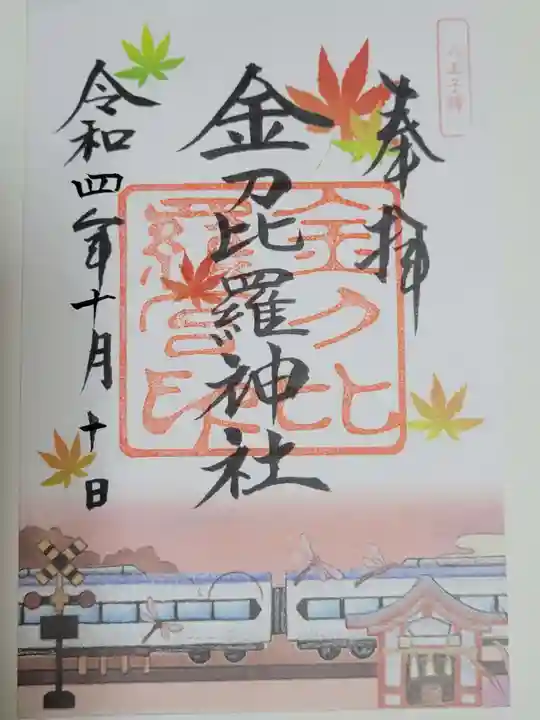 八王子鎮
奉拝
金刀比羅神社
金刀比
羅宮印
令和四年十月十日